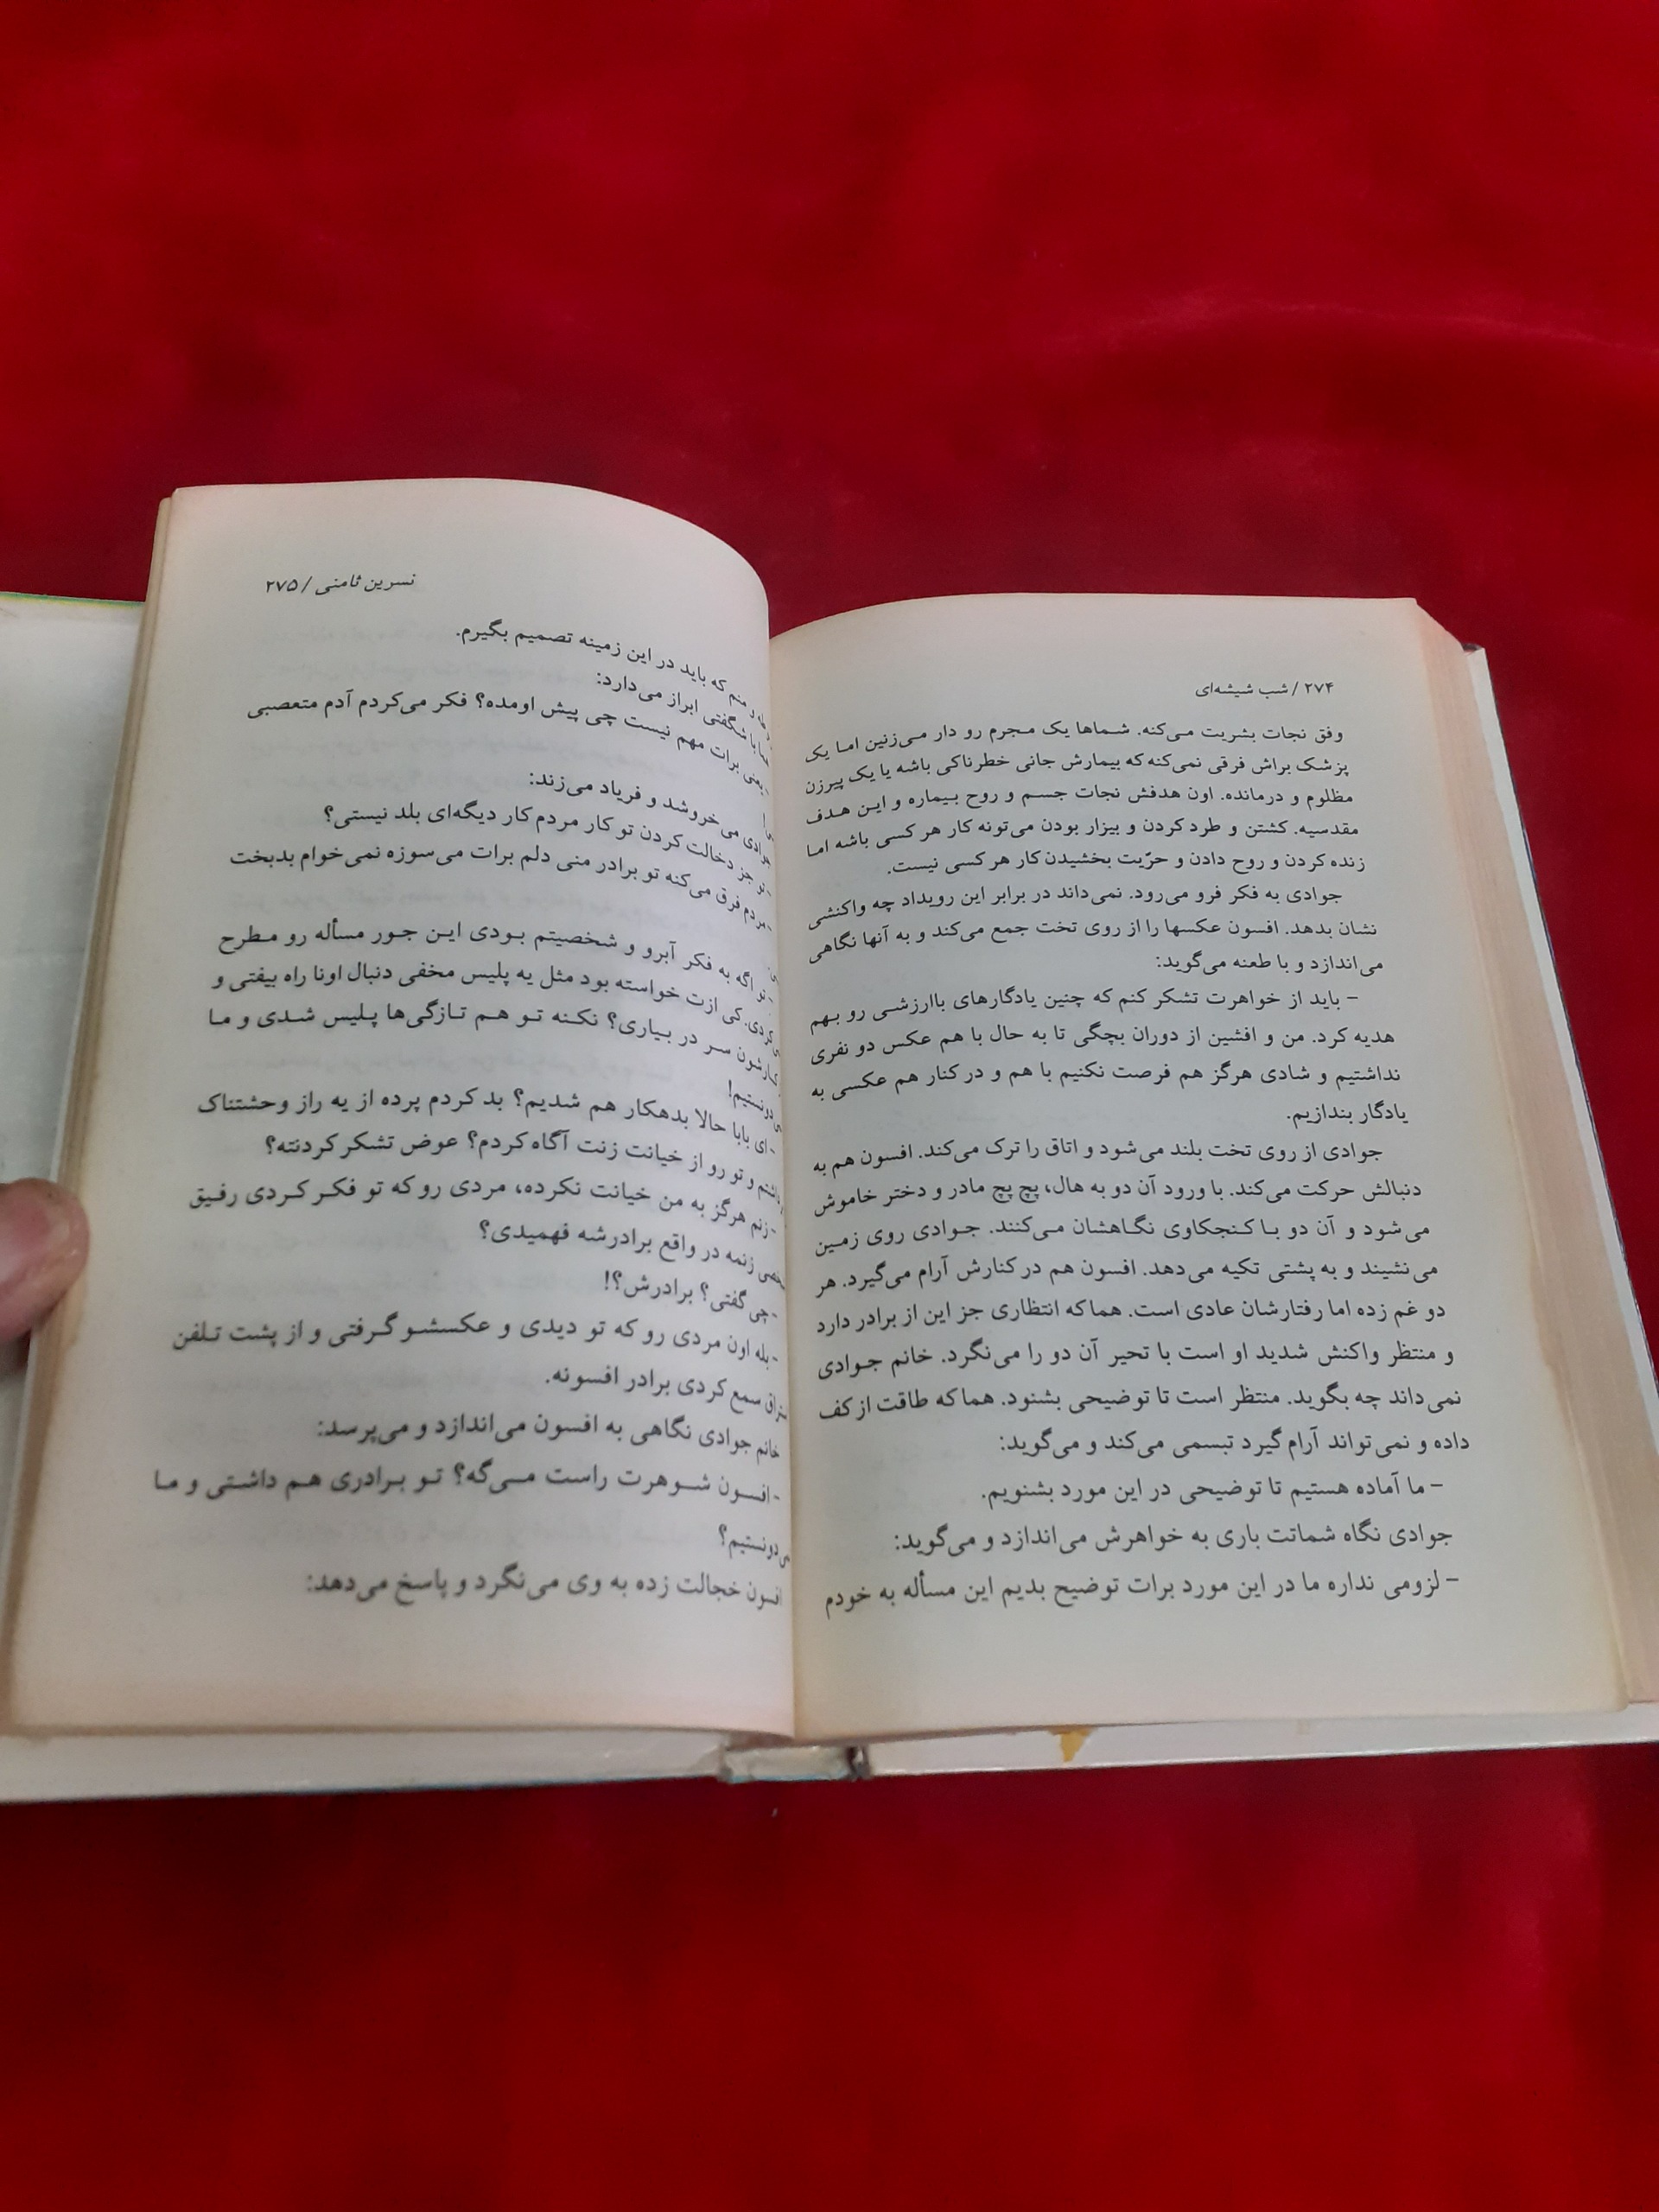 ۲۷۴ / شب شیشه‌ای
وفق نجات بشریت می‌کنه. شماها یک مجرم رو دار می‌زنین اما یک
پزشک براش فرقی نمی‌کنه که بیمارش جانی خطرناکی باشه یا یک پیرزن
مظلوم و درمانده. اون هدفش نجات جسم و روح بیماره و این هدف
مقدسیه. کشتن و طرد کردن و بیزار بودن می‌تونه کار هر کسی باشه اما
زنده کردن و روح دادن و حرّیت بخشیدن کار هر کسی نیست.
جوادی به فکر فرو می‌رود. نمی‌داند در برابر این رویداد چه واکنشی
نشان بدهد. افسون عکسها را از روی تخت جمع می‌کند و به آنها نگاهی
می‌اندازد و با طعنه می‌گوید:
- باید از خواهرت تشکر کنم که چنین یادگارهای باارزشی رو بهم
هدیه کرد. من و افشین از دوران بچگی تا به حال با هم عکس دو نفری
نداشتیم و شادی هرگز هم فرصت نکنیم با هم و در کنار هم عکسی به
یادگار بندازیم.
جوادی از روی تخت بلند می‌شود و اتاق را ترک می‌کند. افسون هم به
دنبالش حرکت می‌کند. با ورود آن دو به هال، پچ پچ مادر و دختر خاموش
می‌شود و آن دو با کنجکاوی نگاهشان می‌کنند. جوادی روی زمین
می‌نشیند و به پشتی تکیه می‌دهد. افسون هم در کنارش آرام می‌گیرد. هر
دو غم زده اما رفتارشان عادی است. هما که انتظاری جز این از برادر دارد
و منتظر واکنش شدید او است با تحیر آن دو را می‌نگرد. خانم جوادی
نمی‌داند چه بگوید. منتظر است تا توضیحی بشنود. هما که طاقت از کف
داده و نمی‌تواند آرام گیرد تبسمی می‌کند و می‌گوید:
- ما آماده هستیم تا توضیحی در این مورد بشنویم.
جوادی نگاه شماتت باری به خواهرش می‌اندازد و می‌گوید:
- لزومی نداره ما در این مورد برات توضیح بدیم این مسأله به خودم
نسرین ثامنی / ۲۷۵
و منم که باید در این زمینه تصمیم بگیرم.
با شگفتی ابراز می‌دارد:
- یعنی برات مهم نیست چی پیش اومده؟ فکر می‌کردم آدم متعصبی
جوادی می‌خروشد و فریاد می‌زند:
- تو جز دخالت کردن تو کار مردم کار دیگه‌ای بلد نیستی؟
- مردم فرق می‌کنه تو برادر منی دلم برات می‌سوزه نمی‌خوام بدبخت
- تو اگه به فکر آبرو و شخصیتم بودی این جور مسأله رو مطرح
کردی. کی ازت خواسته بود مثل یه پلیس مخفی دنبال اونا راه بیفتی و
کارشون سر در بیاری؟ نکنه تو هم تازگی‌ها پلیس شدی و ما
دونستیم!
- ای بابا حالا بدهکار هم شدیم؟ بد کردم پرده از یه راز وحشتناک
و تو رو از خیانت زنت آگاه کردم؟ عوض تشکر کردنته؟
- زنم هرگز به من خیانت نکرده، مردی رو که تو فکر کردی رفیق
زنمه در واقع برادرشه فهمیدی؟
- چی گفتی؟ برادرش؟!
- بله اون مردی رو که تو دیدی و عکسشو گرفتی و از پشت تلفن
سمع کردی برادر افسونه.
خانم جوادی نگاهی به افسون می‌اندازد و می‌پرسد:
- افسون شوهرت راست می‌گه؟ تو برادری هم داشتی و ما
دونستیم؟
افسون خجالت زده به وی می‌نگرد و پاسخ می‌دهد: